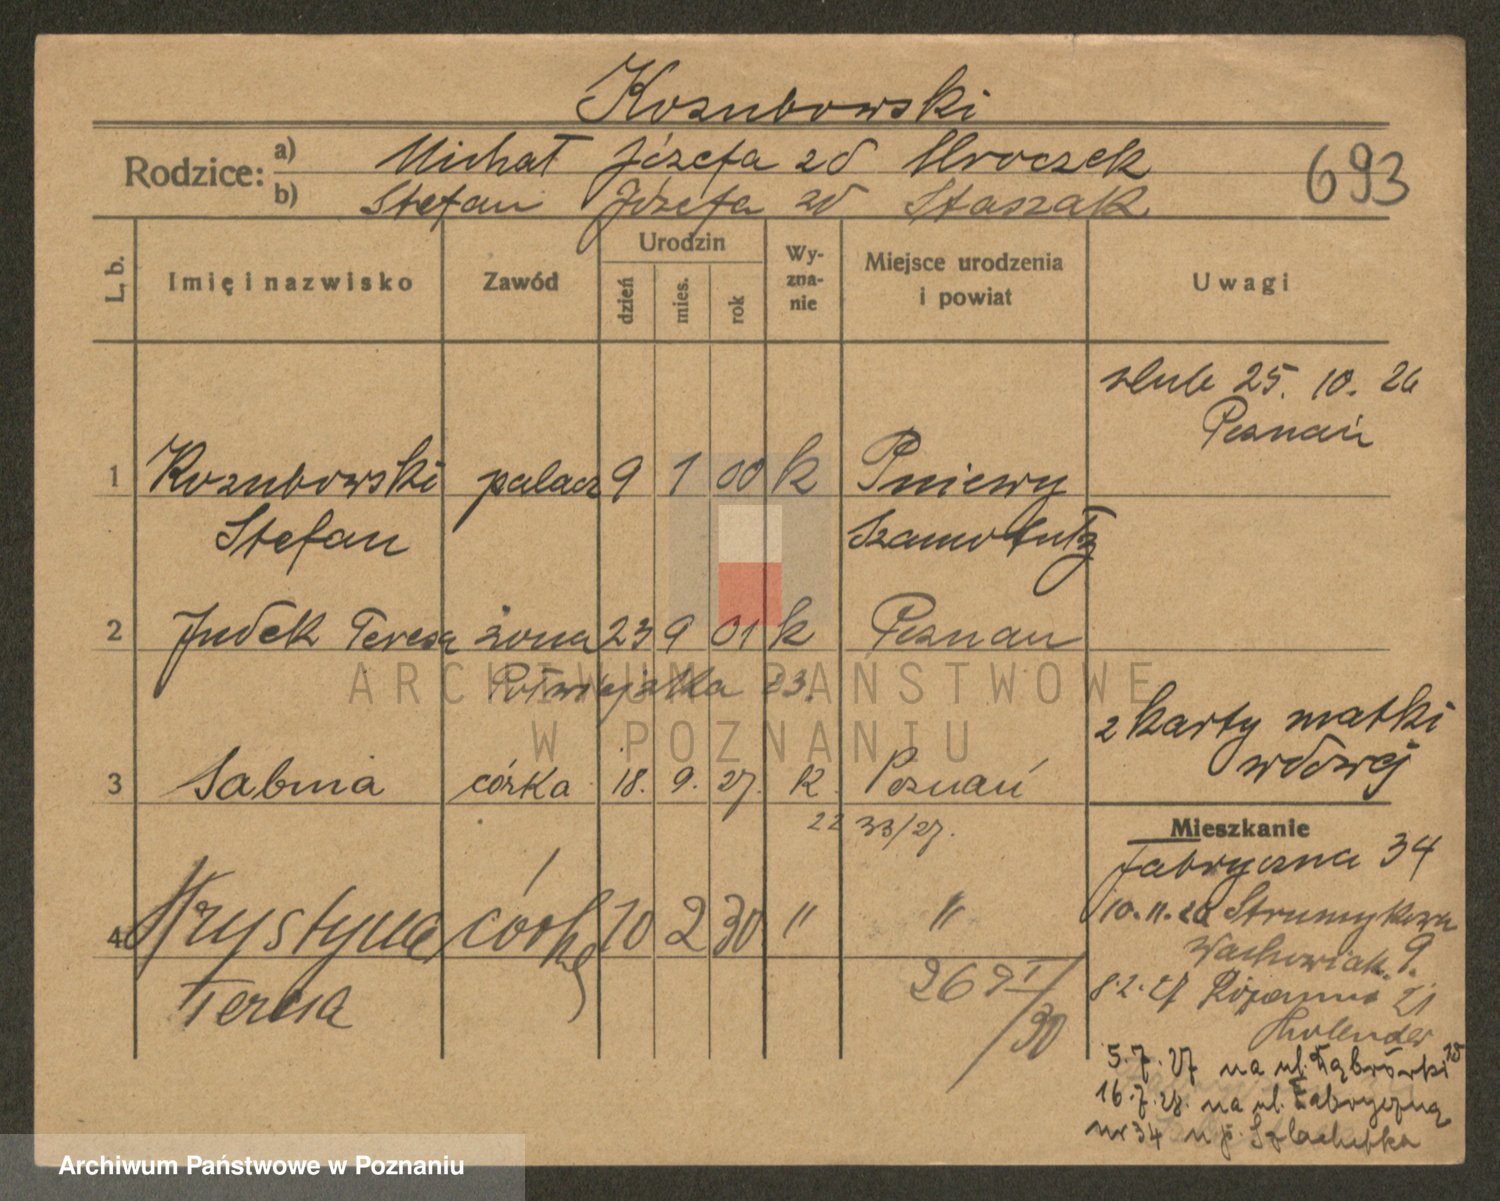 Kozubowski
Rodzice: a) Michał Józefa zd Mroczek
b) Stefan Józefa zd Staszak
693
L. b. Imię i nazwisko Zawód Urodzin dzień mies. rok Wyznanie Miejsce urodzenia i powiat Uwagi
ślub 25. 10. 26
Poznań
1 Kozubowski palacz 9 1 00 k Pniewy
Stefan Szamotuły
2 Judek Teresa żona 23 9 01 k Poznan
Półwiejska 23.
z karty matki
wdowej
3 Sabina córka 18. 9. 27. k Poznań
22 33/27.
Mieszkanie
Fabryczna 34
4 Krystyna córka 10 2 30 " "
Teresa
269 I/30
10.11.26 Strumykowa
Wachowiak. 9.
8.2.27 Różanna 21
Holender
5.7.27 na ul. Dąbrówki 15
16.7.28. na ul. Fabryczną
nr 34 u p. Szlachetka
ARCHIWUM PAŃSTWOWE
W POZNANIU
Archiwum Państwowe w Poznaniu